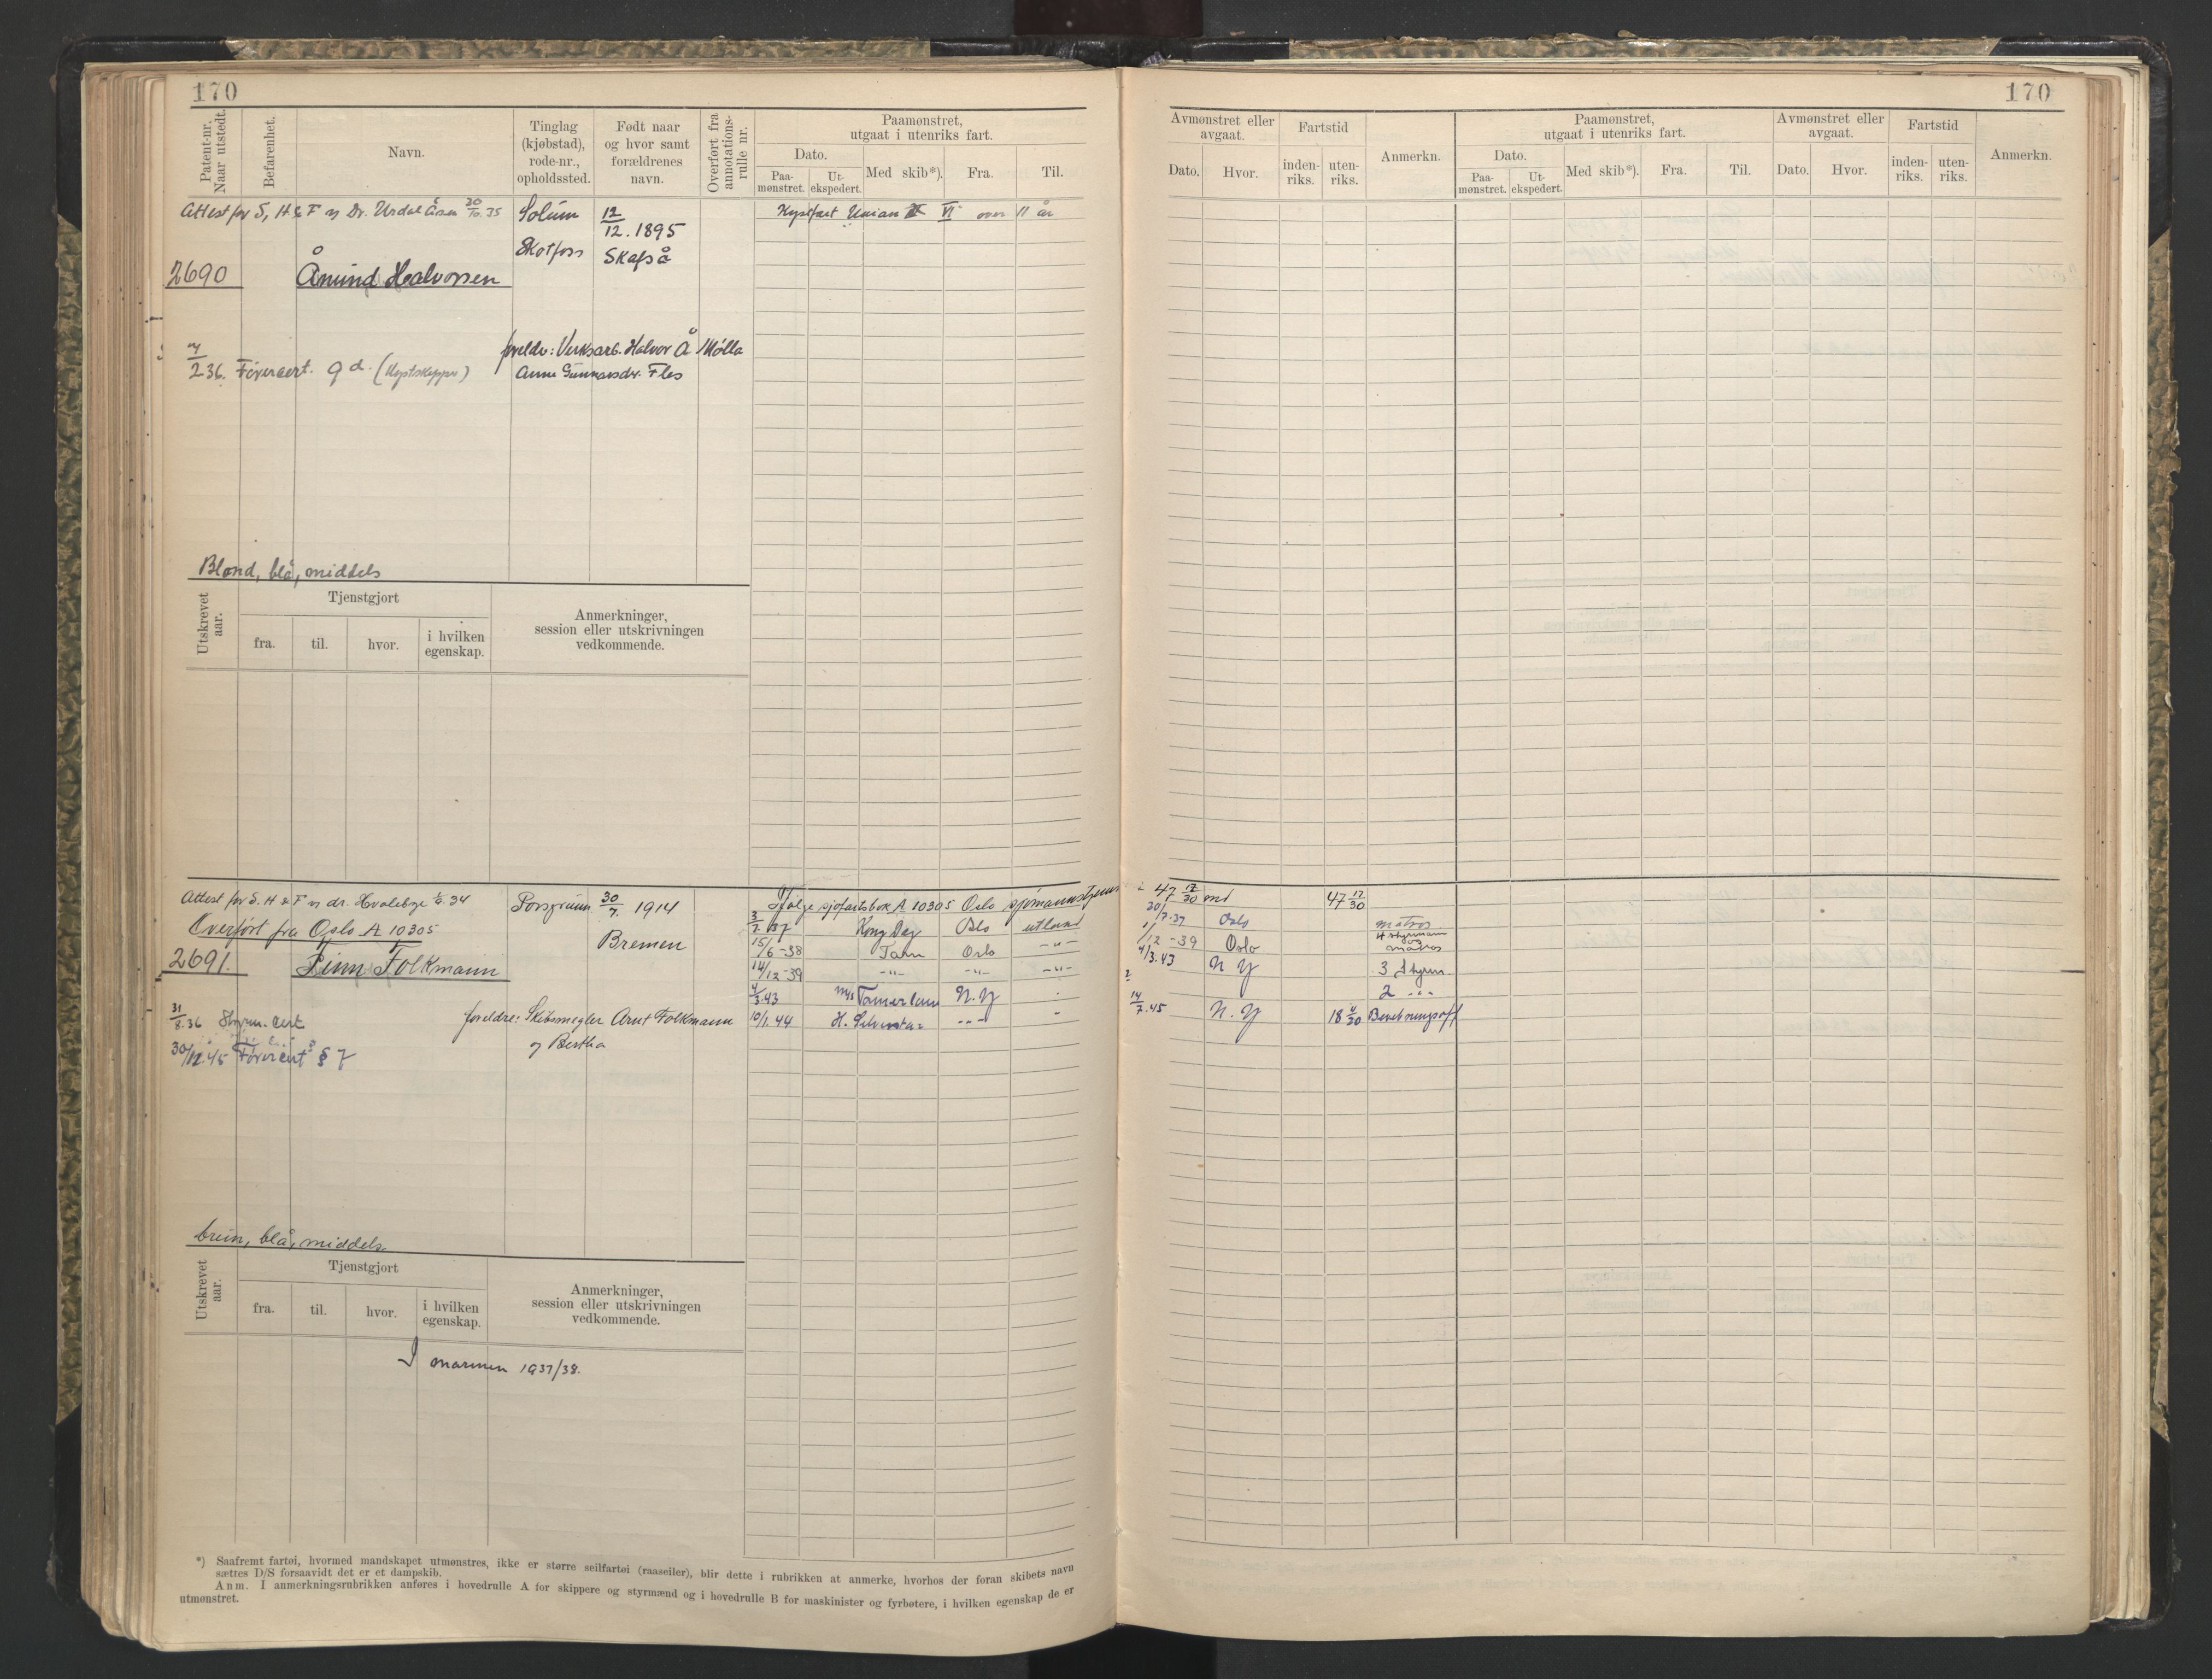 170
170
Patent-nr. Naar utstedt.
Befarenhet.
Navn.
Tinglag (kjøbstad), rode-nr., opholdssted.
Født naar og hvor samt forældrenes navn.
Overført fra annotations-rulle nr.
Paamønstret, utgaat i utenriks fart.
Dato.
Paa-mønstret.
Ut-ekspedert.
Med skib*).
Fra.
Til.
Avmønstret eller avgaat.
Dato.
Hvor.
Fartstid
inden-riks.
uten-riks.
Anmerkn.
Paamønstret, utgaat i utenriks fart.
Dato.
Paa-mønstret.
Ut-ekspedert.
Med skib*).
Fra.
Til.
Avmønstret eller avgaat.
Dato.
Hvor.
Fartstid
inden-riks.
uten-riks.
Anmerkn.
Attest for S, H & F v/ Dr. Urdal Åsen 20/10.35
Solum
Skotfoss
12/12.1895
Skafså
Kystfart Union VI over 11 år
2690
Ånund Halvorsen
foreldr: Verksarb. Halvor Å Mølla
Anne Gunnarsdr. Fles
2 36. Førercert. gd. (Kystskipper)
Blond, blå, middels
Utskrevet aar.
Tjenstgjort
fra.
til.
hvor.
i hvilken egenskap.
Anmerkninger, session eller utskrivningen vedkommende.
Attest for S. H & F v/ dr. Hvalebye 34
Overført fra Oslo A 10305
2691.
Finn Folkmann
Porsgrunn
30/7. 1914
Bremen
Ifølge sjøfartsbok A 10305 Oslo sjømannstjen
47 17/30 md
47 17/30
37 Kong Dag Oslo utland
20/7.37 Oslo matros
15/6-38 Tarn Oslo -"-
1/12-39 Oslo 4 styrmann og matros
14/12-39 -"- -"- -"-
4/3.43 N Y 3 Styrm
4/3.43 m/s Tamerlane N.Y
2 -"-
10/1.44 H. Silverstar -"-
14/7.45 N.Y 18 4/30
31/8.36 Styrm.cert
30/12.45 Førercert § 7
foreldre: Skibsmegler Arnt Folkmann
og Bertha
brun, blå, middels
Utskrevet aar.
Tjenstgjort
fra.
til.
hvor.
i hvilken egenskap.
Anmerkninger, session eller utskrivningen vedkommende.
I marinen 1937/38.
*) Saafremt fartøi, hvormed mandskapet utmønstres, ikke er større seilfartøi (raaseiler), blir dette i rubrikken at anmerke, hvorhos der foran skibets navn
sættes D/S forsaavidt det er et dampskib.
Anm. I anmerkningsrubrikken anføres i hovedrulle A for skippere og styrmænd og i hovedrulle B for maskinister og fyrbøtere, i hvilken egenskap de er
utmønstret.